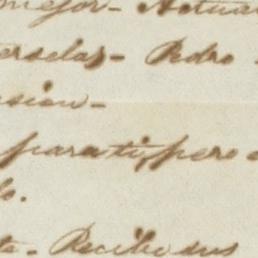 mejor- Actua
erselas- Pedro
sion-
para ti, pero
lo.
Recibe sus